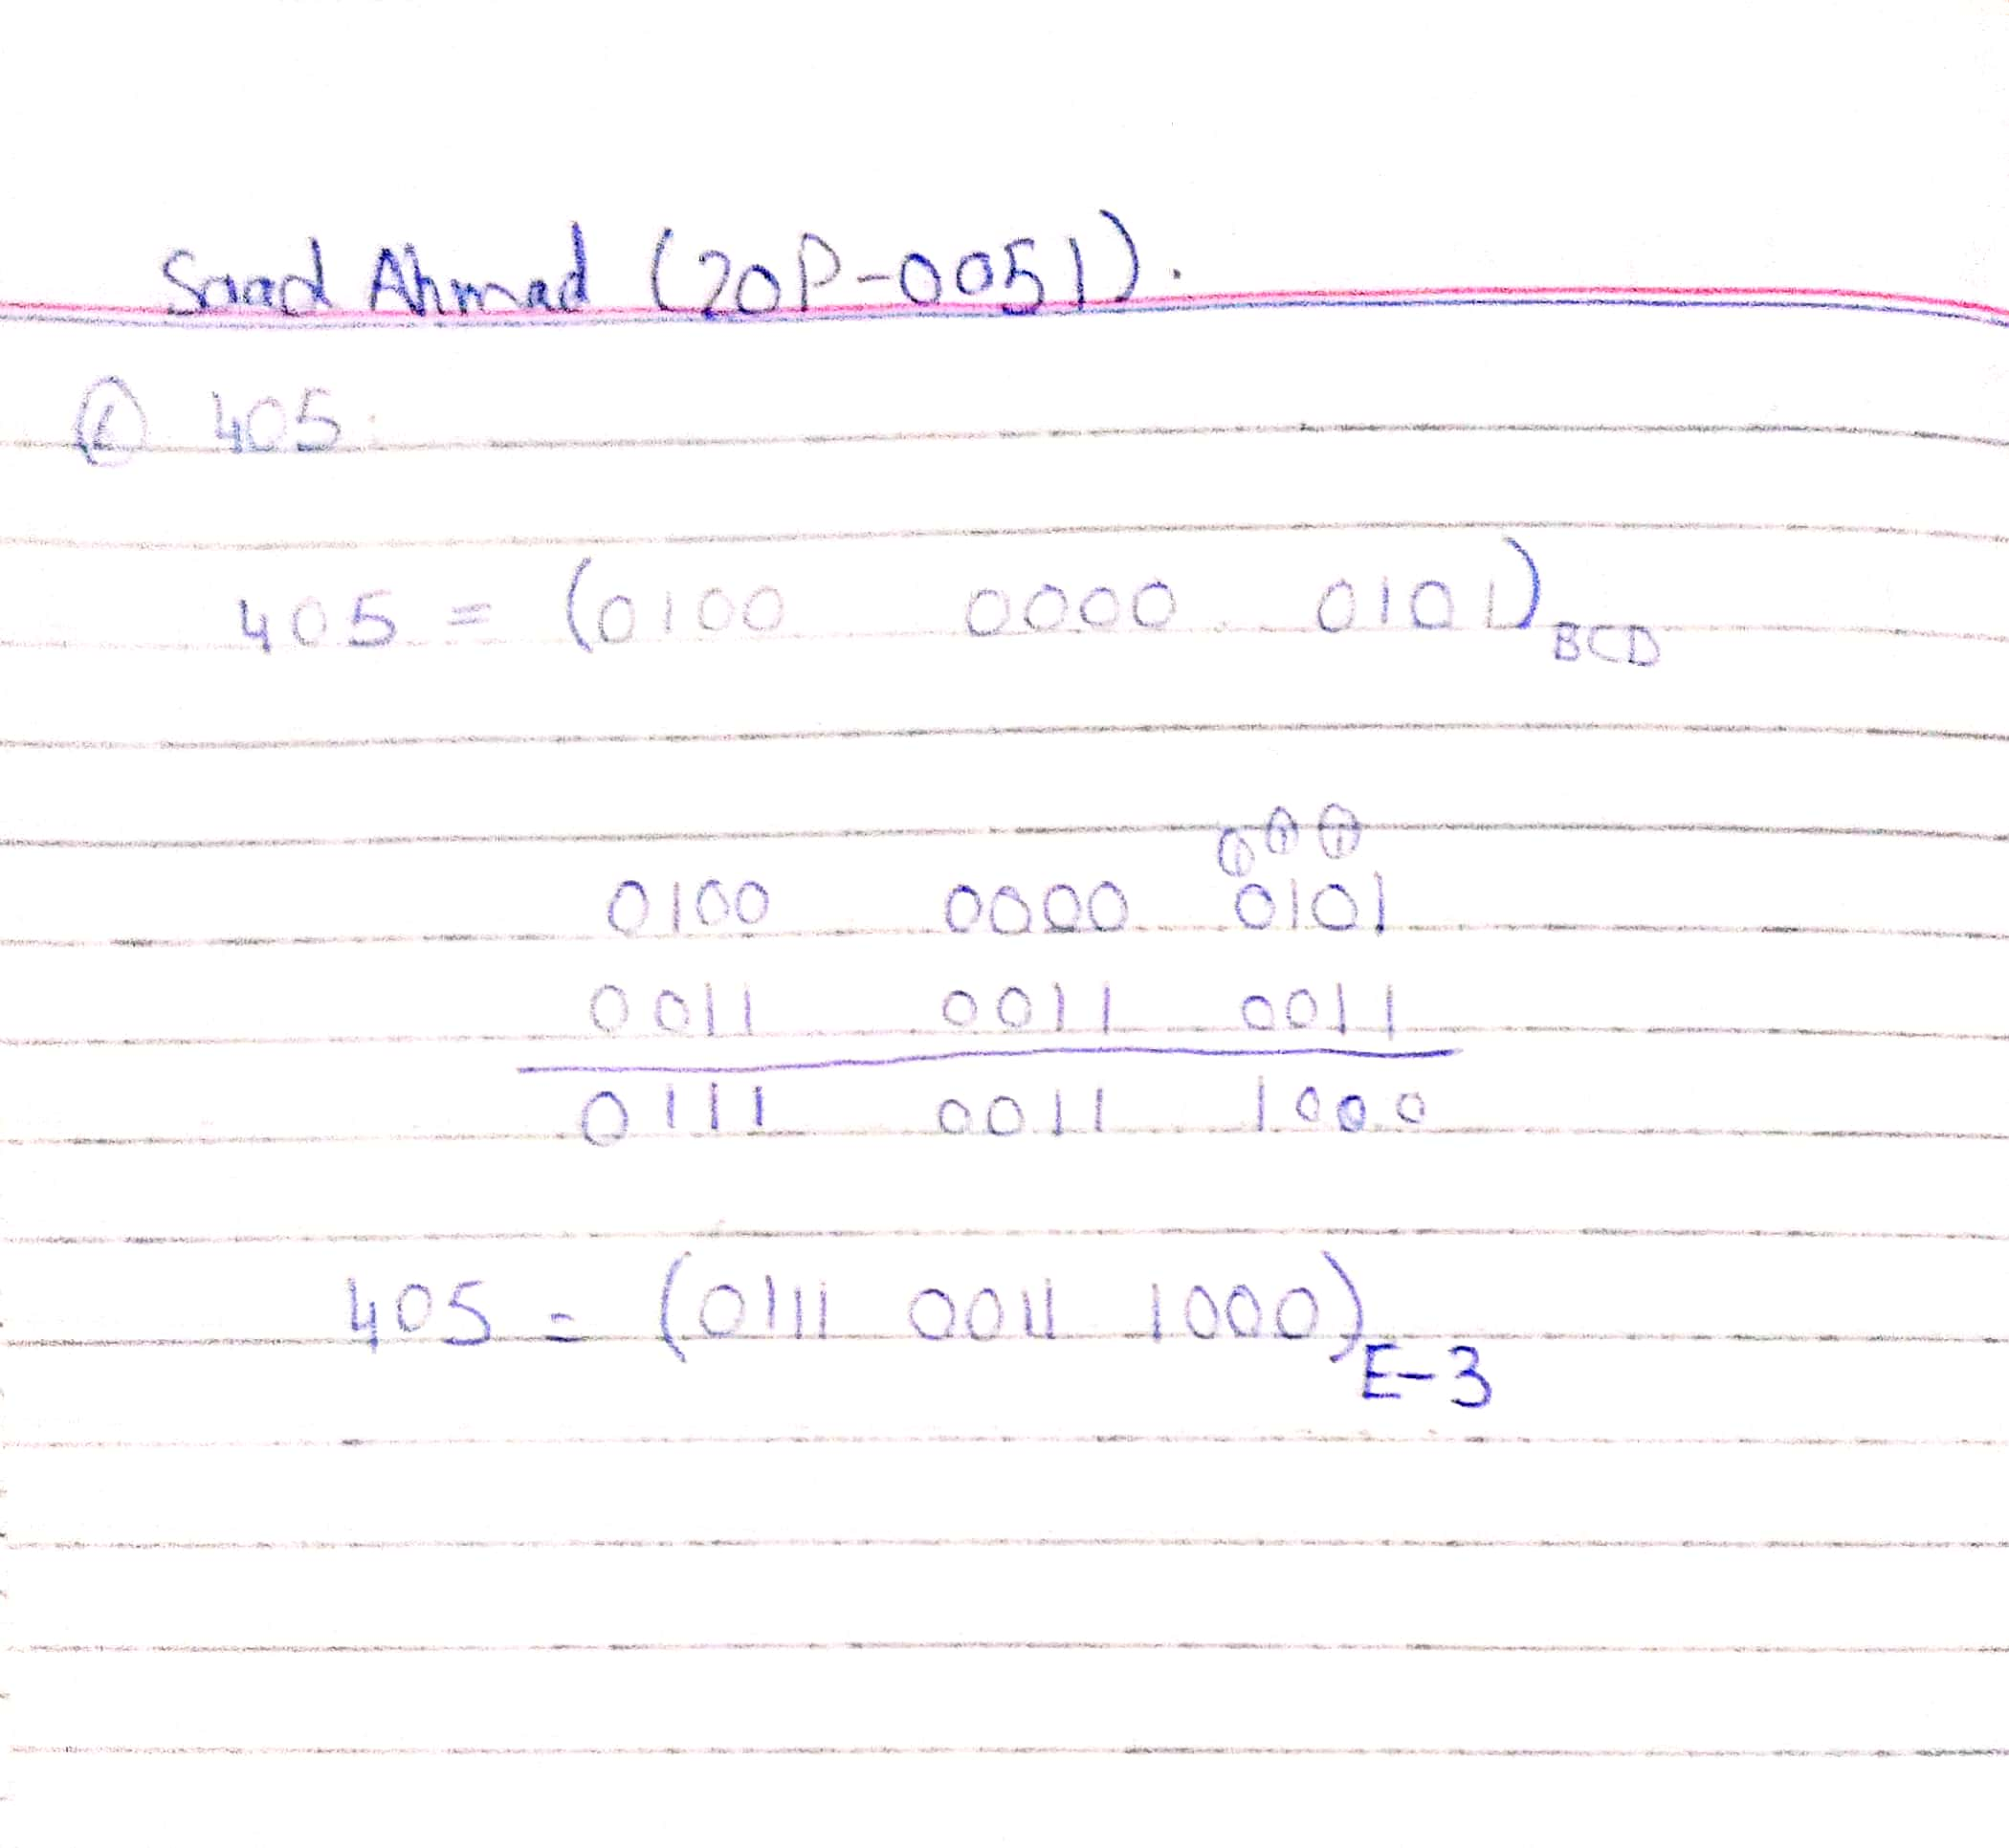 Saad Ahmad (20P-0051).
① 405.
405 = (0100 0000 0101)BCD
① ① ①
0100 0000 0101
0011 0011 0011
0111 0011 1000
405 = (0111 0011 1000)E-3